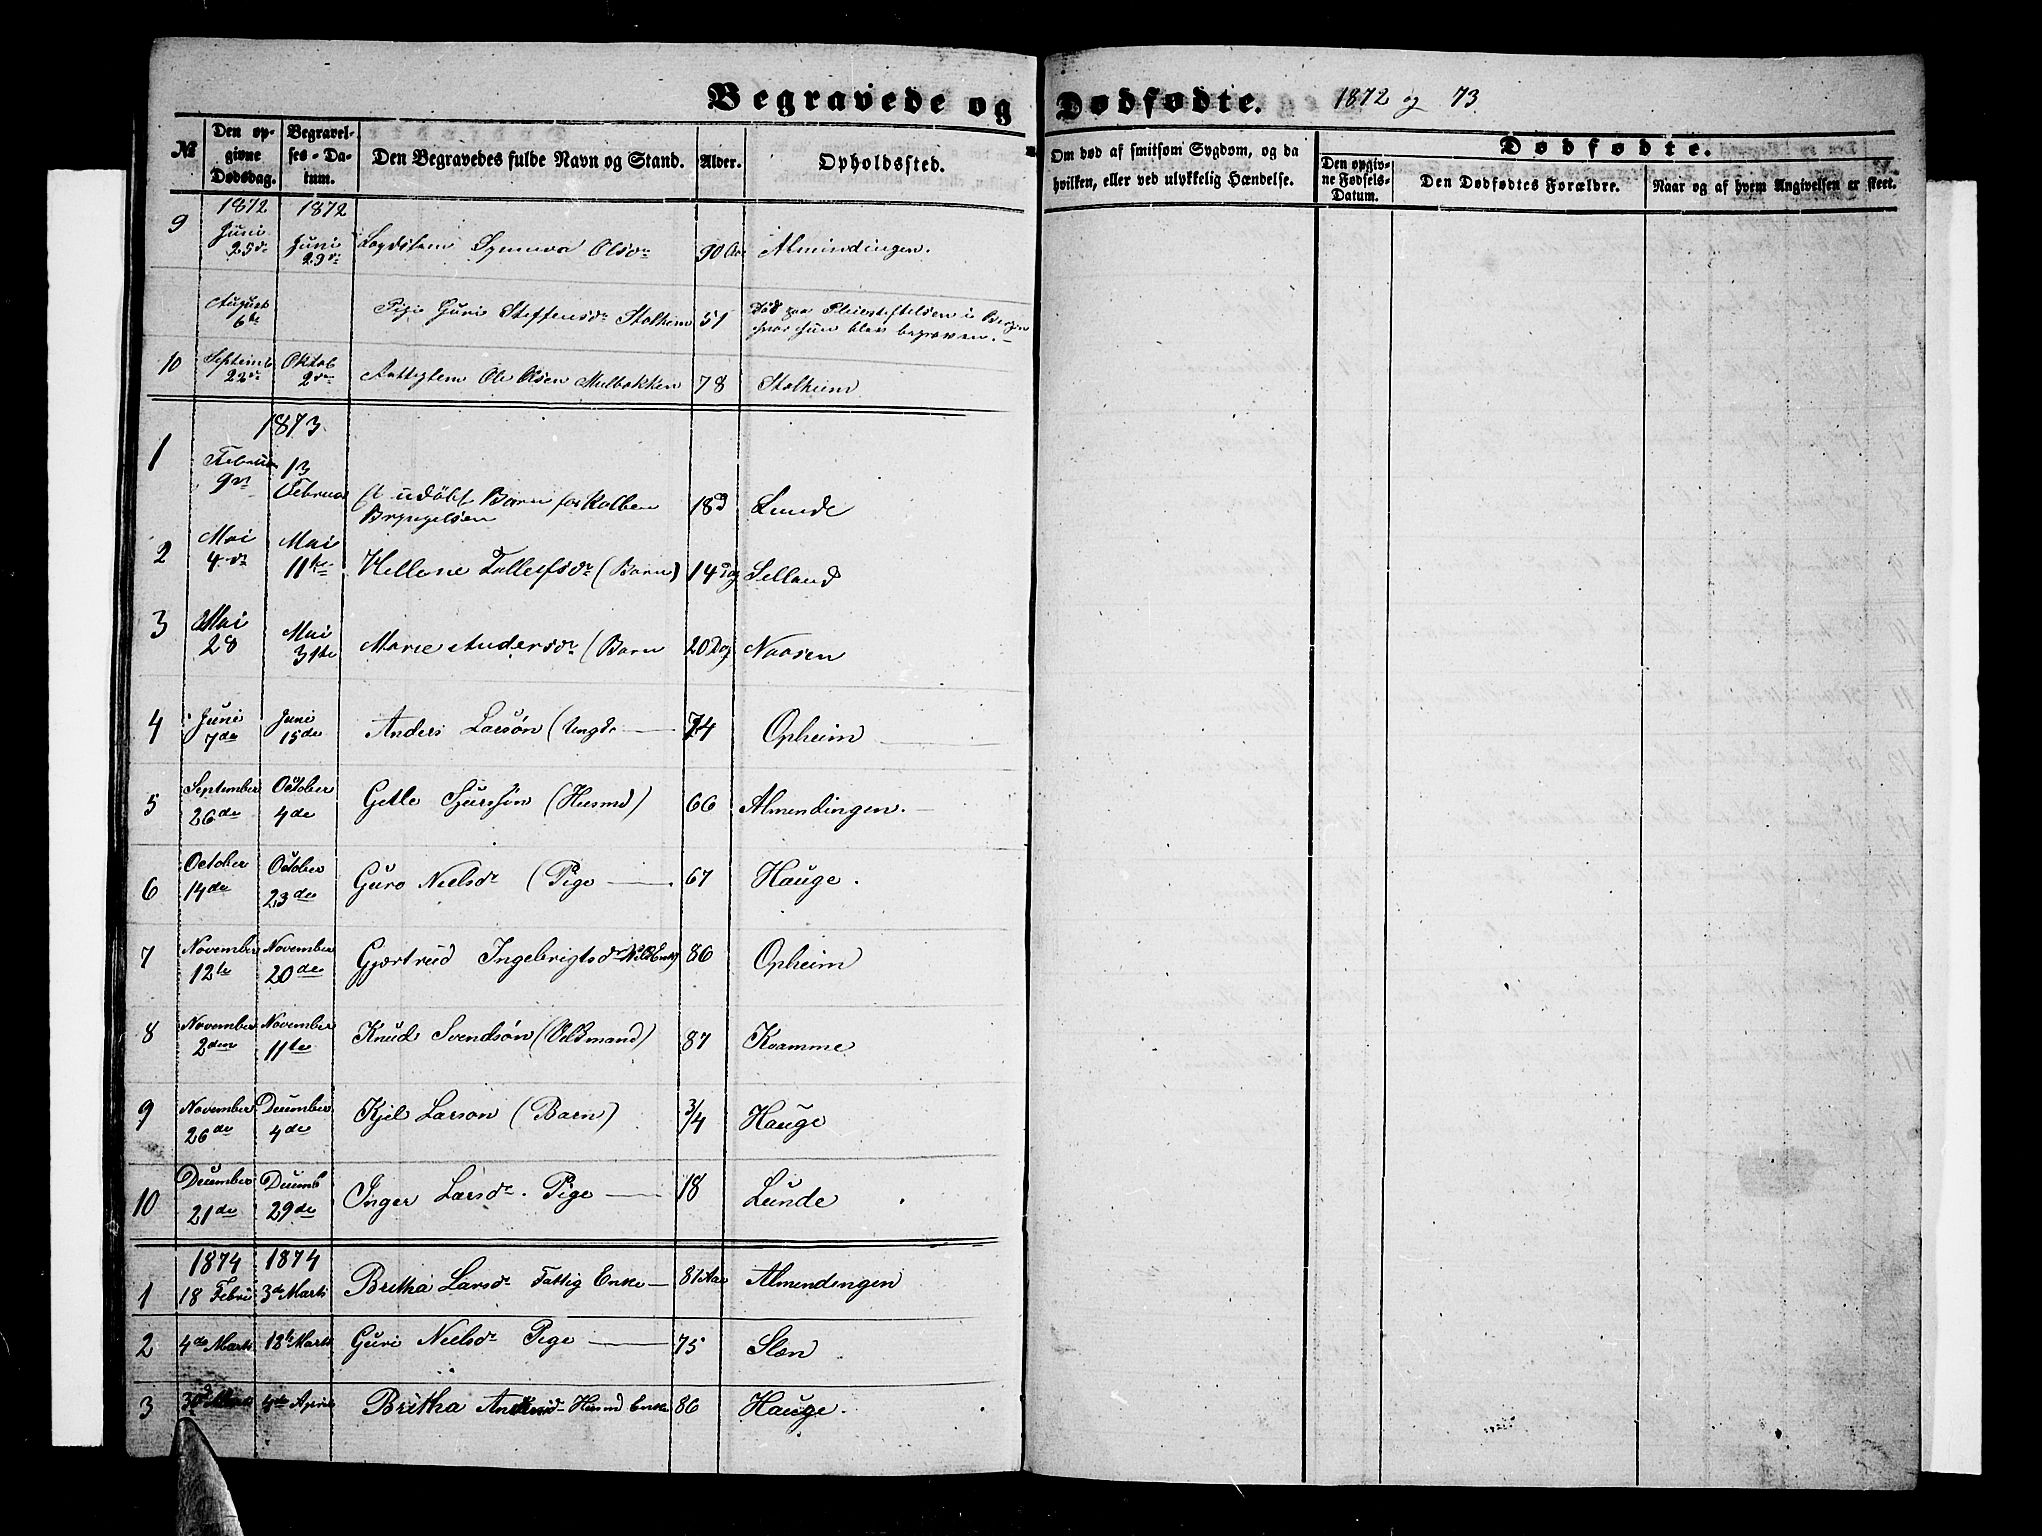 Begravede og Dødfødte. 1872 og 73.
№ Den opgivne Dødsdag. Begravelses-Datum. Den Begravedes fulde Navn og Stand. Alder. Opholdssted. Om død af smitsom Sygdom, og da hvilken, eller ved ulykkelig Hændelse. Dødfødte. Den opgivne Fødsels-Datum. Den Dødfødtes Forældre. Naar og af hvem Angivelsen er skeet.
1872 1872
9 Juni 25de Juni 29de Synneva Olsdr 90 Aar Almindingen.
August 6te Pige Guri Steffensdr Stalheim 51 Død paa Pleiestiftelsen i Bergen
hvor hun blev begraven.
10 Septemb 22de Oktob 2den Ole Olsen Mulbakken 78 Stalheim
1873
1 Februar 9de 13 Februar Et udøbt Barn for Kolben
Bryngelsen 18 d Lunde
2 Mai 4de Mai 11te Hellene Tollefsdr (Barn) 14 dg Selland
3 Mai 28 Mai 31te Marie Andersdr (Barn 20 Dg Naasen
4 Juni 7de Juni 15de Anders Larsøn (Ungd. 74 Opheim
5 September 26de October 4de Getle Sjursøn (Husmd) 66 Almendingen.
6 October 14de October 23de Guro Nielsdr (Pige 67 Hauge.
7 November 12te November 20de Gjertrud Ingebrigtsdr 86 Opheim
8 November 2den November 11te Knud Svendsøn (Vilkmand) 87 Kvamme
9 November 26de December 4de Kjel Larson (Barn) 3/4 Hauge
10 December 21de Decemb 29de Inger Larsdr. Pige 18 Lunde
1874 1874
1 18 Febru 3de Marts Britha Larsdr Fattig Enke 81 Aar Almendingen
2 4de Marts 13te Marts Guri Nielsdr Pige 75 Slæn
3 30 4de April Britha Husmd Enke 86 Hauge.